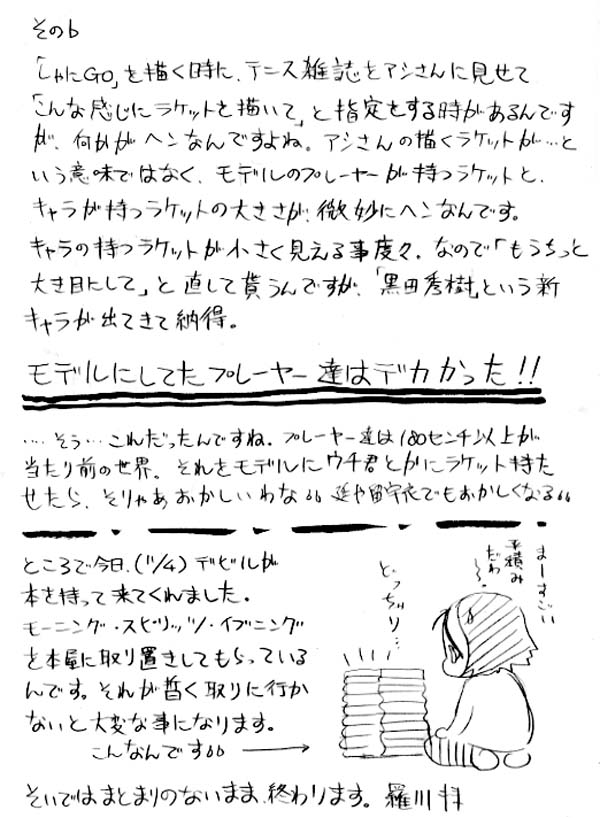 その6
「しゃにGO」を描く時に、テニス雑誌をアシさんに見せて
「こんな感じにラケットを描いて」と指定をする時があるんです
が、何かがヘンなんですよね。アシさんの描くラケットが…と
いう意味ではなく、モデルのプレーヤーが持つラケットと、
キャラが持つラケットの大きさが、微妙にヘンなんです。
キャラの持つラケットが小さく見える事度々。なので「もうちっと
大き目にして」と直して貰うんですが、「黒田秀樹」という新
キャラが出てきて納得。
モデルにしてたプレーヤー達はデカかった!!
….そう…これだったんですね。プレーヤー達は180センチ以上が
当たり前の世界。それをモデルにウチ君とかにラケット持た
せたら、そりゃあおかしいわな。。延や留宇衣でもおかしくなる。。
ところで今日、(11/4) デビルが
本を持って来てくれました。
モーニング・スピリッツ・イブニング
を本屋に取り置きしてもらっている
んです。それが暫く取りに行か
ないと大変な事になります。
こんなんです。。→
まーすごい
平積み
だわ
〜。
どっちゃり…
そいではまとまりのないまま、終わります。羅川